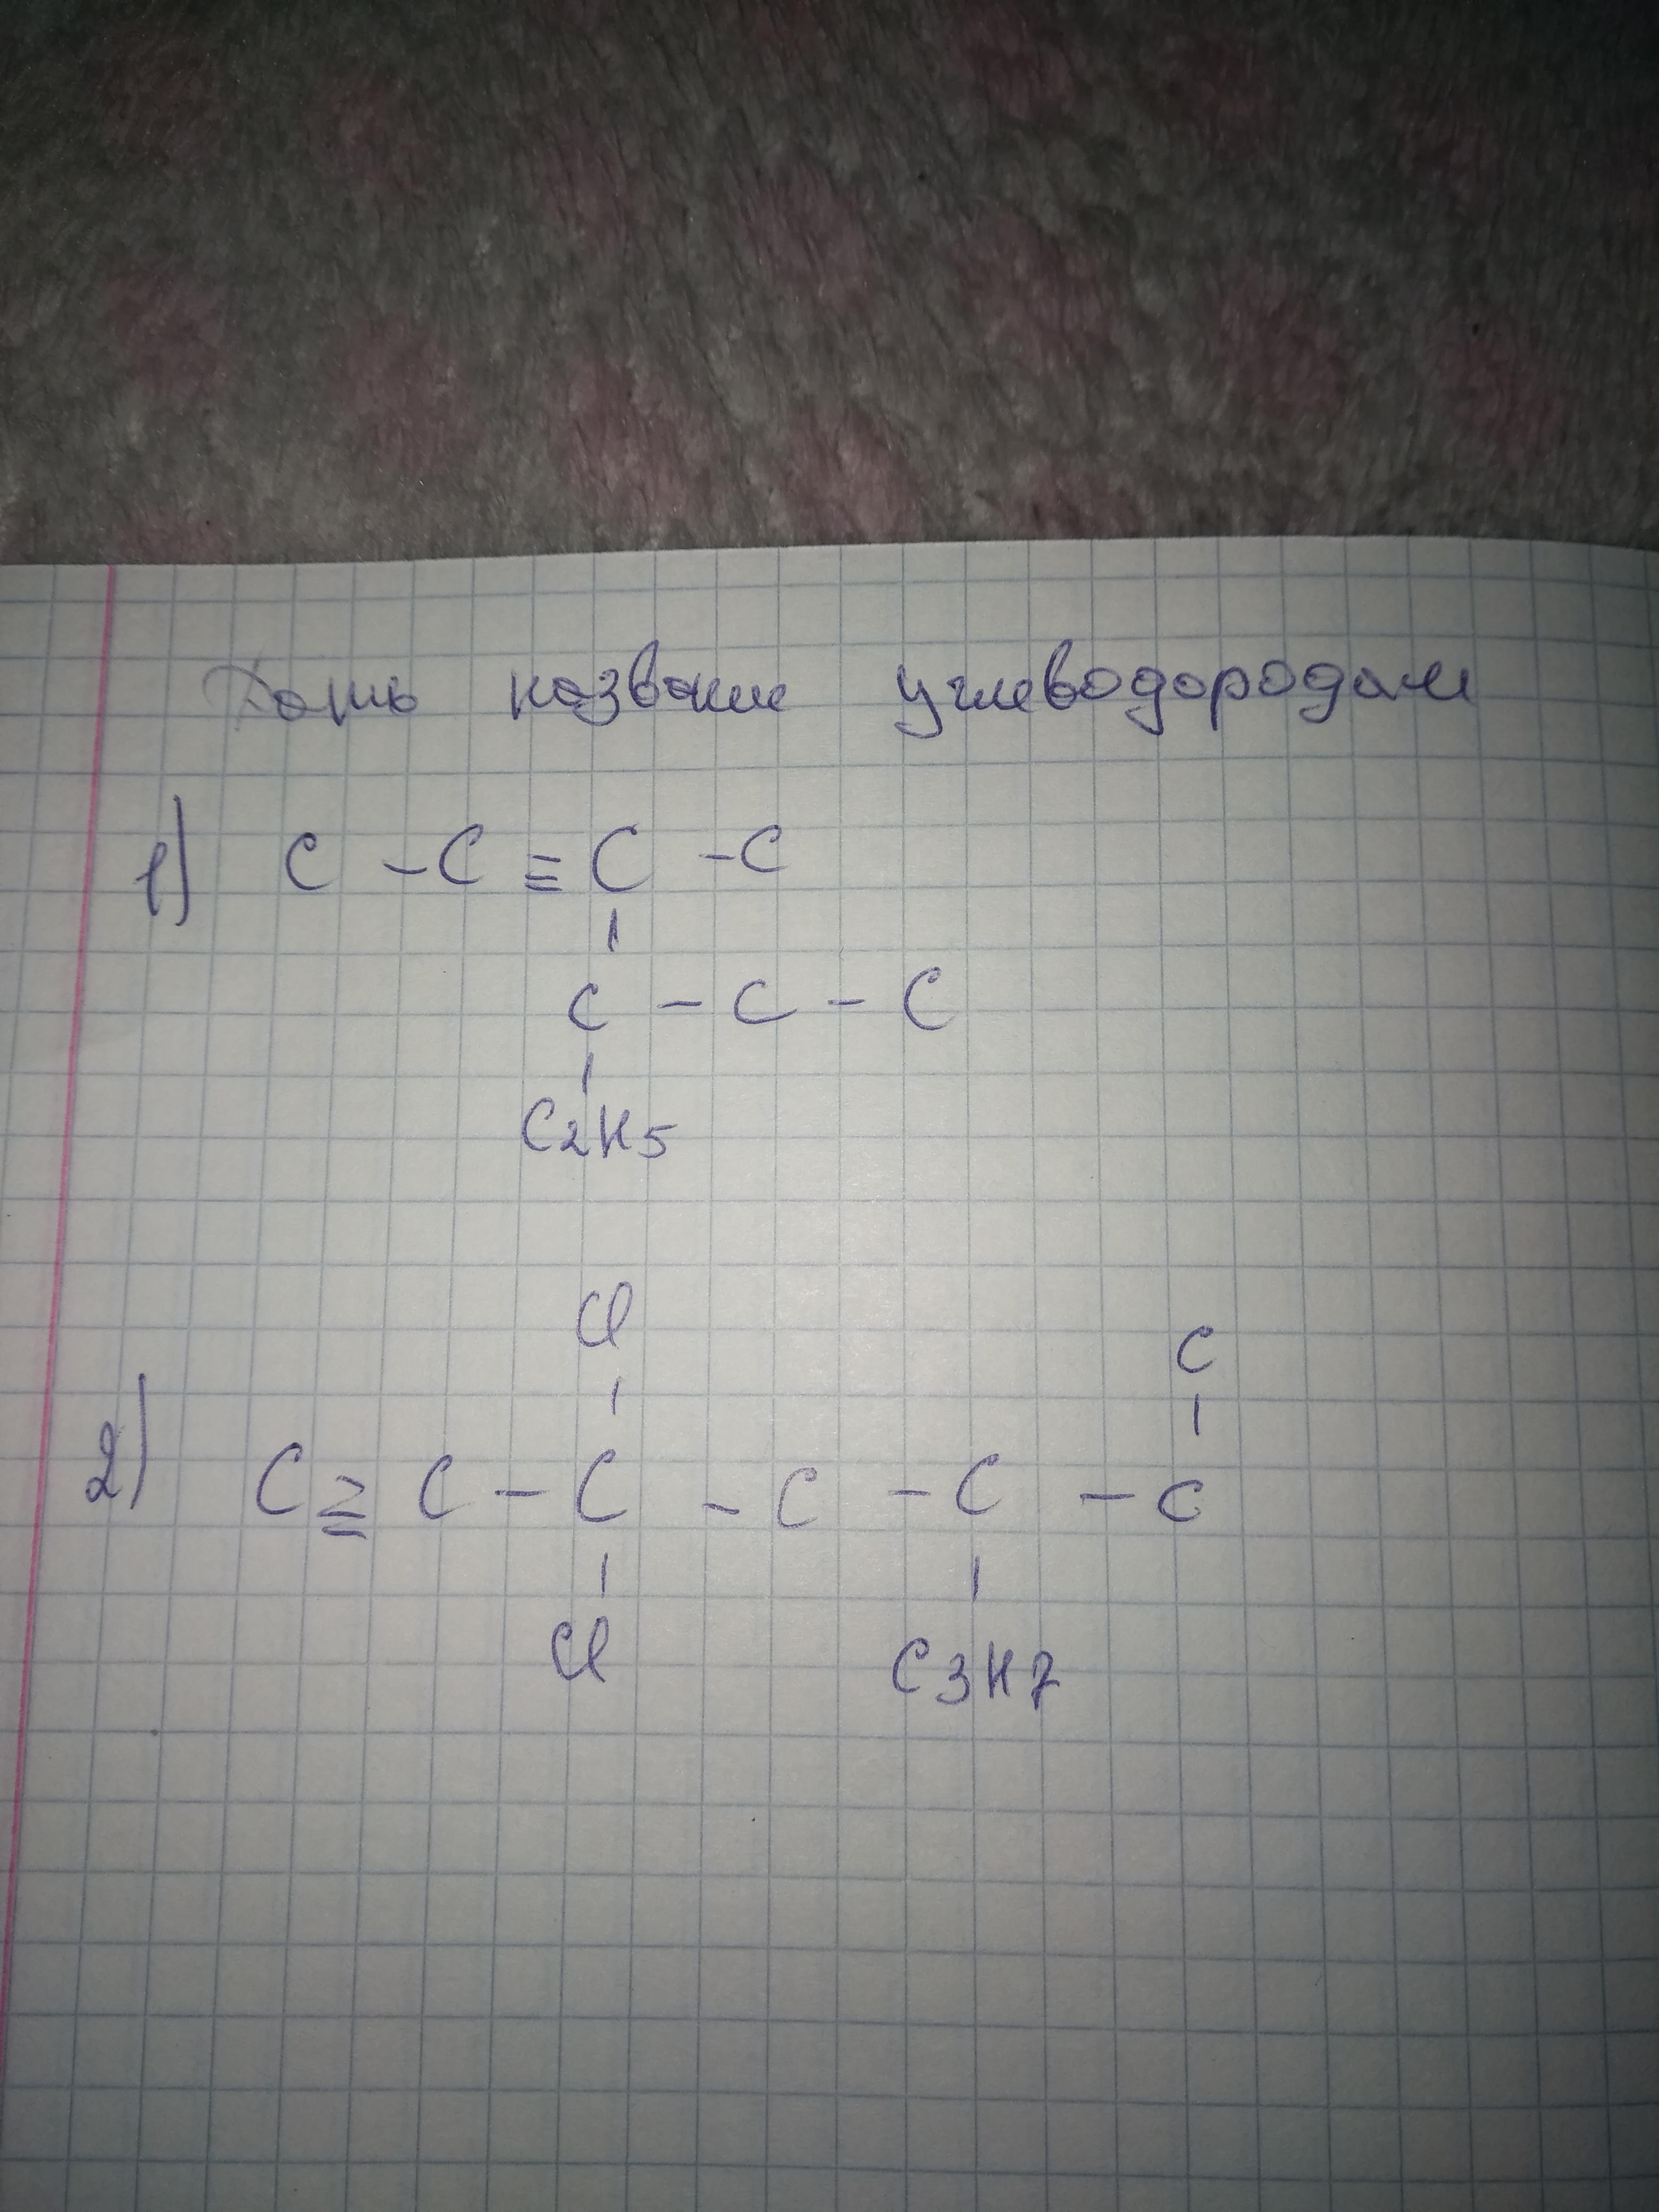 Дать название углеводородам
1) C - C ≡ C - C
C - C - C
C2H5
Cl
C
2) C ≡ C - C - C - C - C
Cl
C3H7